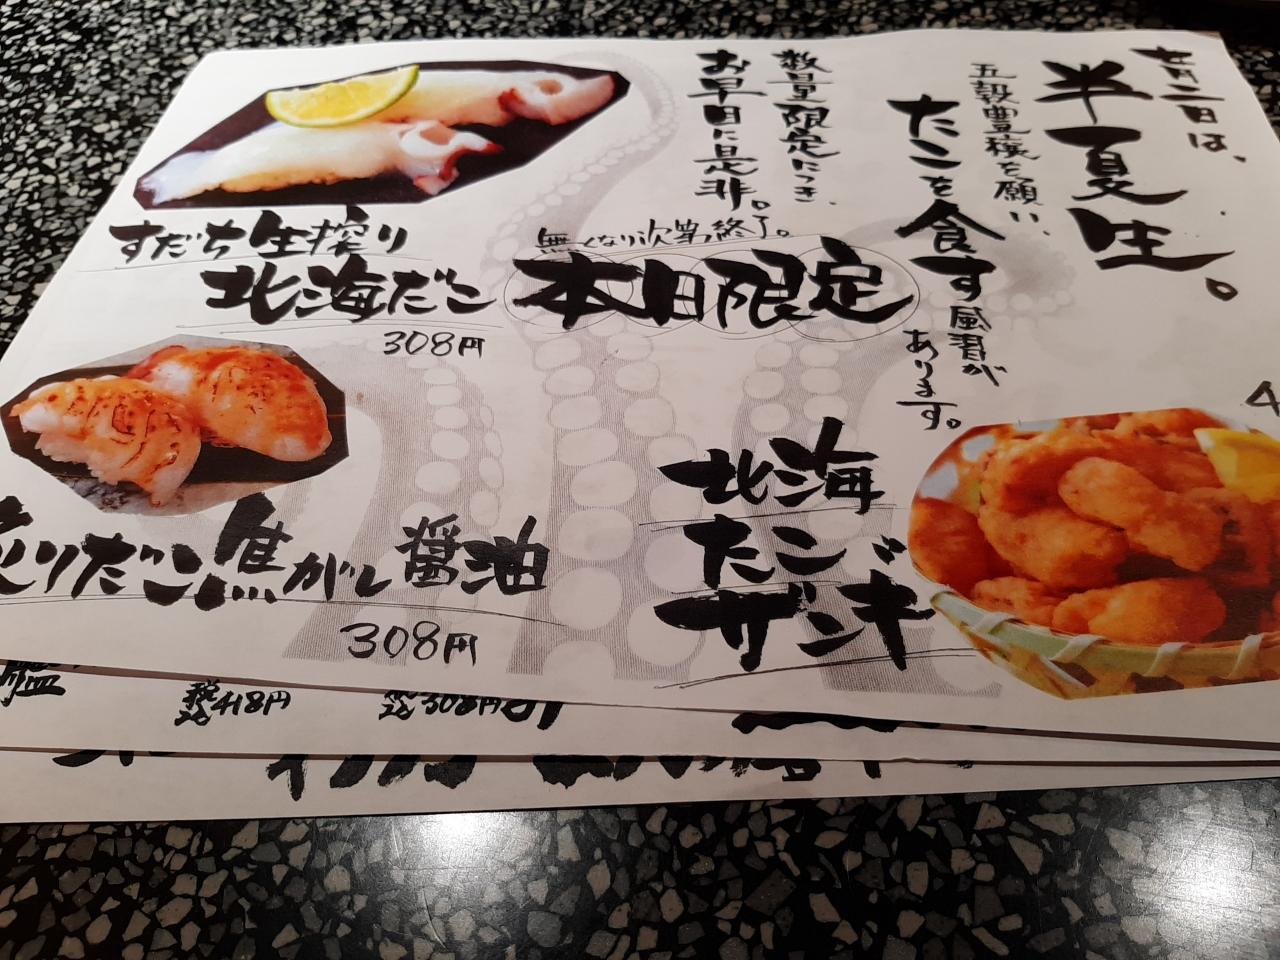 七月二日は、
半夏生。
五穀豊穣を願い
たこを食す風習が
あります。
数量限定につき、
お早目に是非。
無くなり次第、終了。
本日限定
すだち生搾り
北海だこ
308円
炙りだこ焦がし醤油
308円
北海
たこ
ザンギ
4
税込418円
税込308円